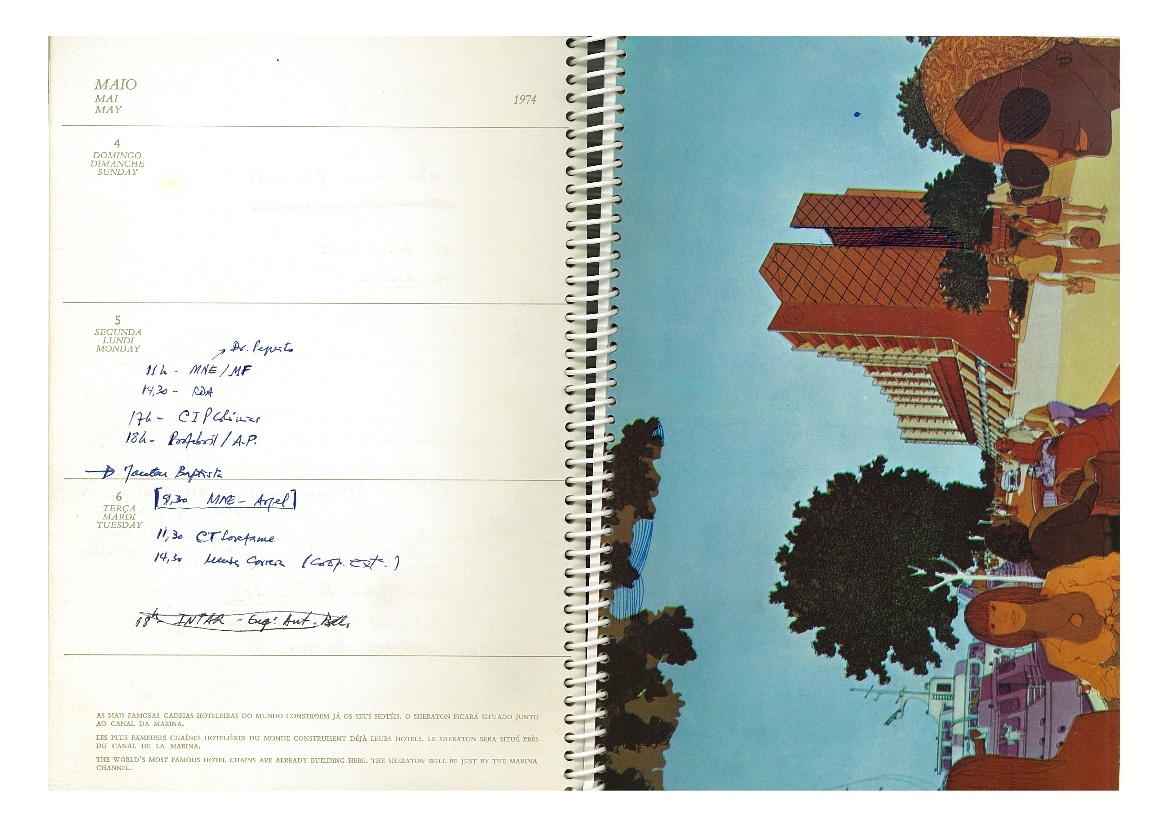 MAIO
MAI
MAY
1974
4
DOMINGO
DIMANCHE
SUNDAY
5
SEGUNDA
LUNDI
MONDAY
Dr.
11h - MNE/MF
14,30 - RDA
17h - CIP
18h - / A.P.
Baptista
6
TERÇA
MARDI
TUESDAY
[9,30 MNE -
11,30 CT
14,30 Correa (Coop. Ext.)
18h INPAR - Engº Ant.
AS MAIS FAMOSAS CADEIAS HOTELEIRAS DO MUNDO CONSTROEM JÁ OS SEUS HOTÉIS. O SHERATON FICARÁ SITUADO JUNTO
AO CANAL DA MARINA.
LES PLUS FAMEUSES CHAÎNES HOTELIÈRES DU MONDE CONSTRUISENT DÉJÀ LEURS HOTELS. LE SHERATON SERA SITUÉ PRÈS
DU CANAL DE LA MARINA.
THE WORLD'S MOST FAMOUS HOTEL CHAINS ARE ALREADY BUILDING HERE. THE SHERATON WILL BE JUST BY THE MARINA
CHANNEL.